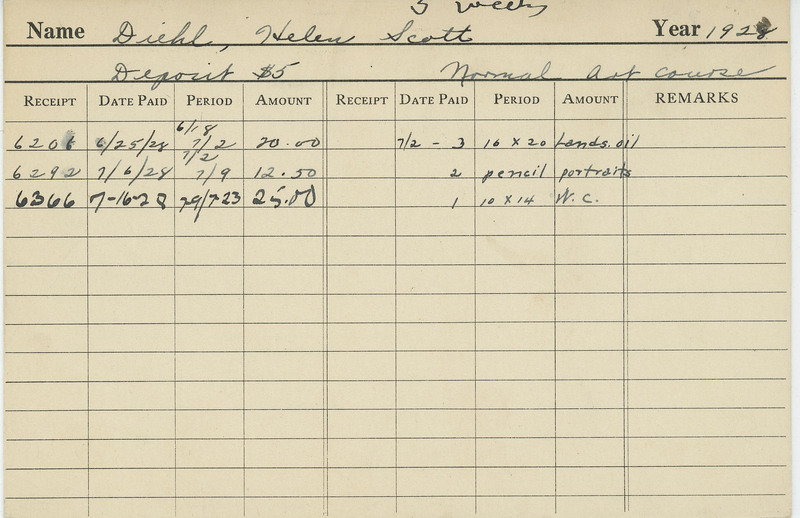 5 weeks
Name Diehl, Helen Scott Year 1928
Deposit $5 Normal Art course
RECEIPT DATE PAID PERIOD AMOUNT RECEIPT DATE PAID PERIOD AMOUNT REMARKS
6/18
6206 6/25/28 7/2 20.00 7/2 - 3 16 x 20 Lands. oil
7/2
6292 7/6/28 7/9 12.50 2 pencil portraits
6366 7-16-28 7-9/7-23 25.00 1 10 x 14 W.C.